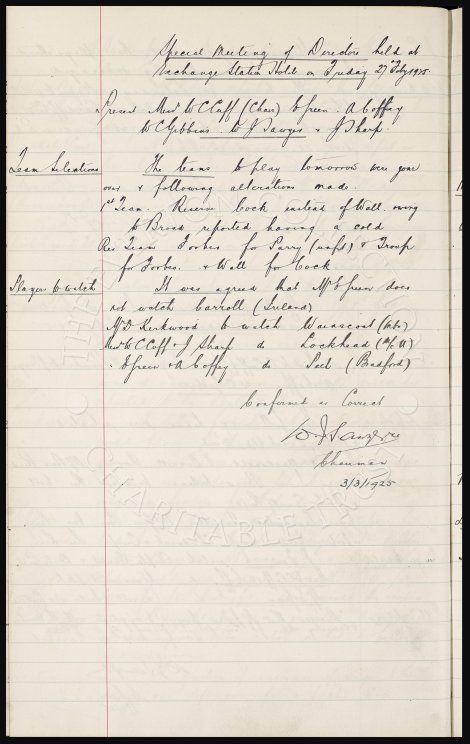 Special Meeting of Directors held at
Exchange Station Hotel on Friday 27 Feby 1925.
Present Messrs W C Cuff (Chair) E Green. A Coffey
W C Gibbins. W J Sawyer & J Sharp.
Team Selections The teams to play tomorrow were gone
over & following alterations made.
1st Team. Reserve Cock instead of Wall. owing
to Broad reported having a cold
Res Team Forbes for Parry (unfit) & Troup
for Forbes. & Wall for Cock
Players to watch It was agreed that Mr E Green does
not watch Carroll (Ireland)
Mr D Kirkwood to watch Wainscoat
Messrs W C Cuff & J Sharp do Lockhead (M/C U)
" E Green & A Coffey do Peel (Bradford)
Confirmed as Correct
W J Sawyer
Chairman
3/3/1925
CHARITABLE TRUST